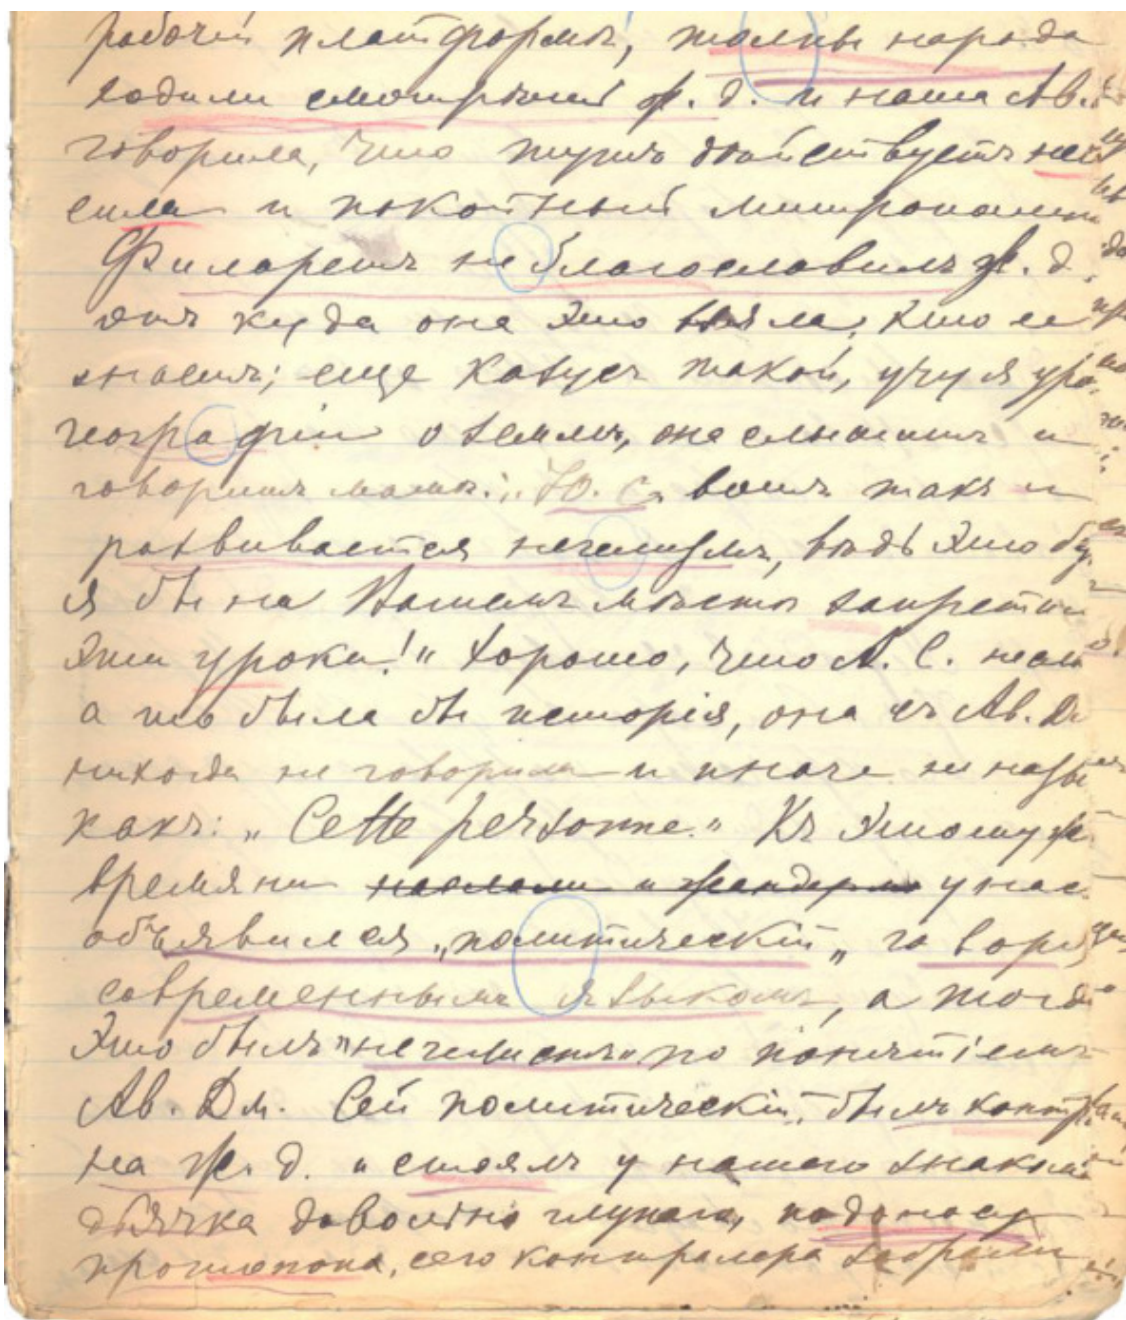 рабочiя платформы, толпы народа
ходили смотрѣть ж. д. и наша Ав.
говорила, что тутъ дѣйствуетъ неч
сила и покойный митрополитъ
Филаретъ не благословилъ ж. д.
отъ куда она это взяла, кто ее
знаетъ; еще казусъ такой, учу я уро
географiи о землѣ, она слышитъ и
говоритъ мамѣ: „Ю. С. вотъ такъ и
развивается нечелизмъ, вѣдь это бу
я бы на Вашемъ мѣстѣ запретил
эти уроки!" Хорошо, что А. С. нѣтъ
а то была бы исторiя, она съ Ав. Дм
никогда не говорила и иначе не назыв
какъ: „Cette personne." Къ этому ж
времяни наѣхали и жандармы у нас
объявился „политическiй" говоря
современнымъ языкомъ, а тогда
это былъ „нечелистъ" по понятiемъ
Ав. Дм. Сей политическiй, былъ контр
на ж. д. и стоялъ у нашего знаком
дьячка довольно глупаго, по доносу
протопопа, сего контролера забрали